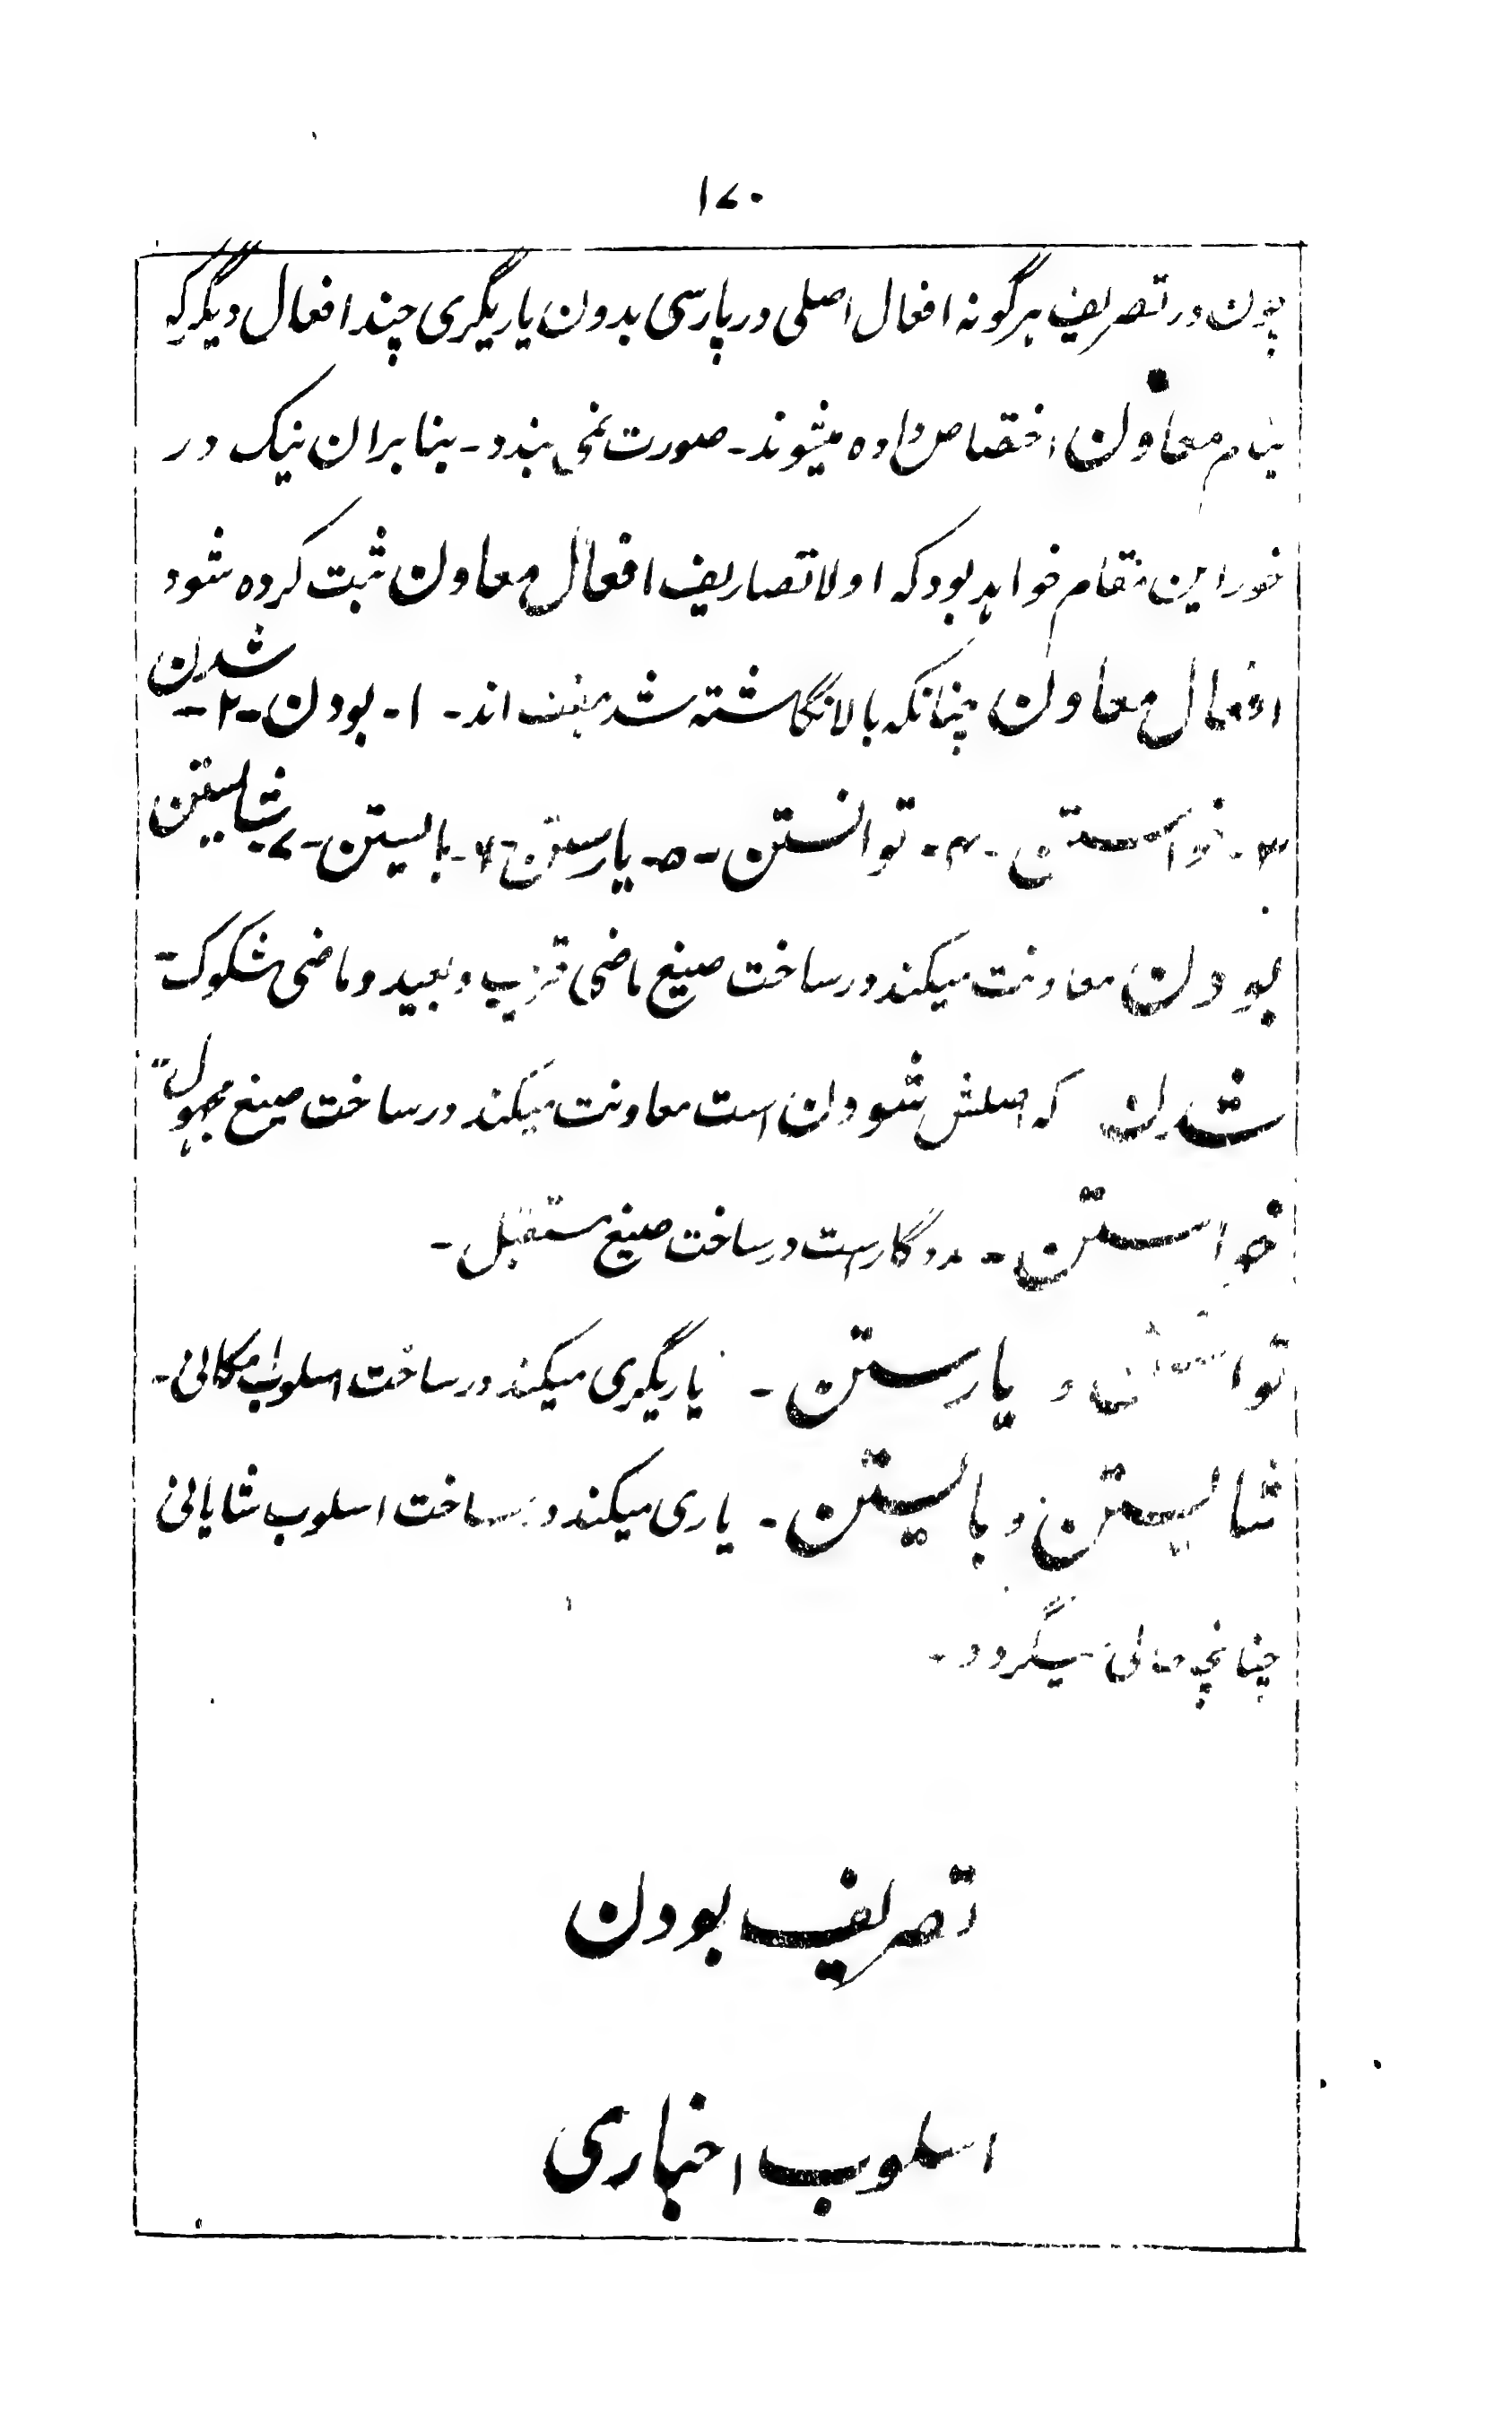 ۱۷۰
چون در تصریف ہرگونہ افعال اصلی در پارسی بدون یاریگری چند افعال دیگر کہ
بنام معاون اختصاص دادہ میشوند۔ صورت نمی بندد۔ بنا بران نیک در
خور این مقام خواہد بود کہ اولا تصاریف افعال معاون ثبت کردہ شود
افعال معاون چنانکہ بالا نگاشتہ شد ہفت اند۔ ۱۔ بودن۔ ۲۔ شدن
۳۔ خواستن۔ ۴۔ توانستن۔ ۵۔ یارستن۔ ۶۔ بایستن۔ ۷۔ شایستن
بودن معاونت میکند در ساخت صیغ ماضی قریب و بعید و ماضی شکوک۔
شدن کہ اصلش شودن است معاونت میکند در ساخت صیغ مجہول۔
خواستن۔ مددگارست در ساخت صیغ مستقبل۔
توانستن و یارستن۔ یاریگری میکند در ساخت اسلوب امکانی۔
شایستن و بایستن۔ یاری میکند در ساخت اسلوب شایانی
چنانچہ حالی میگردد۔
تصریف بودن
اسلوب اخباری